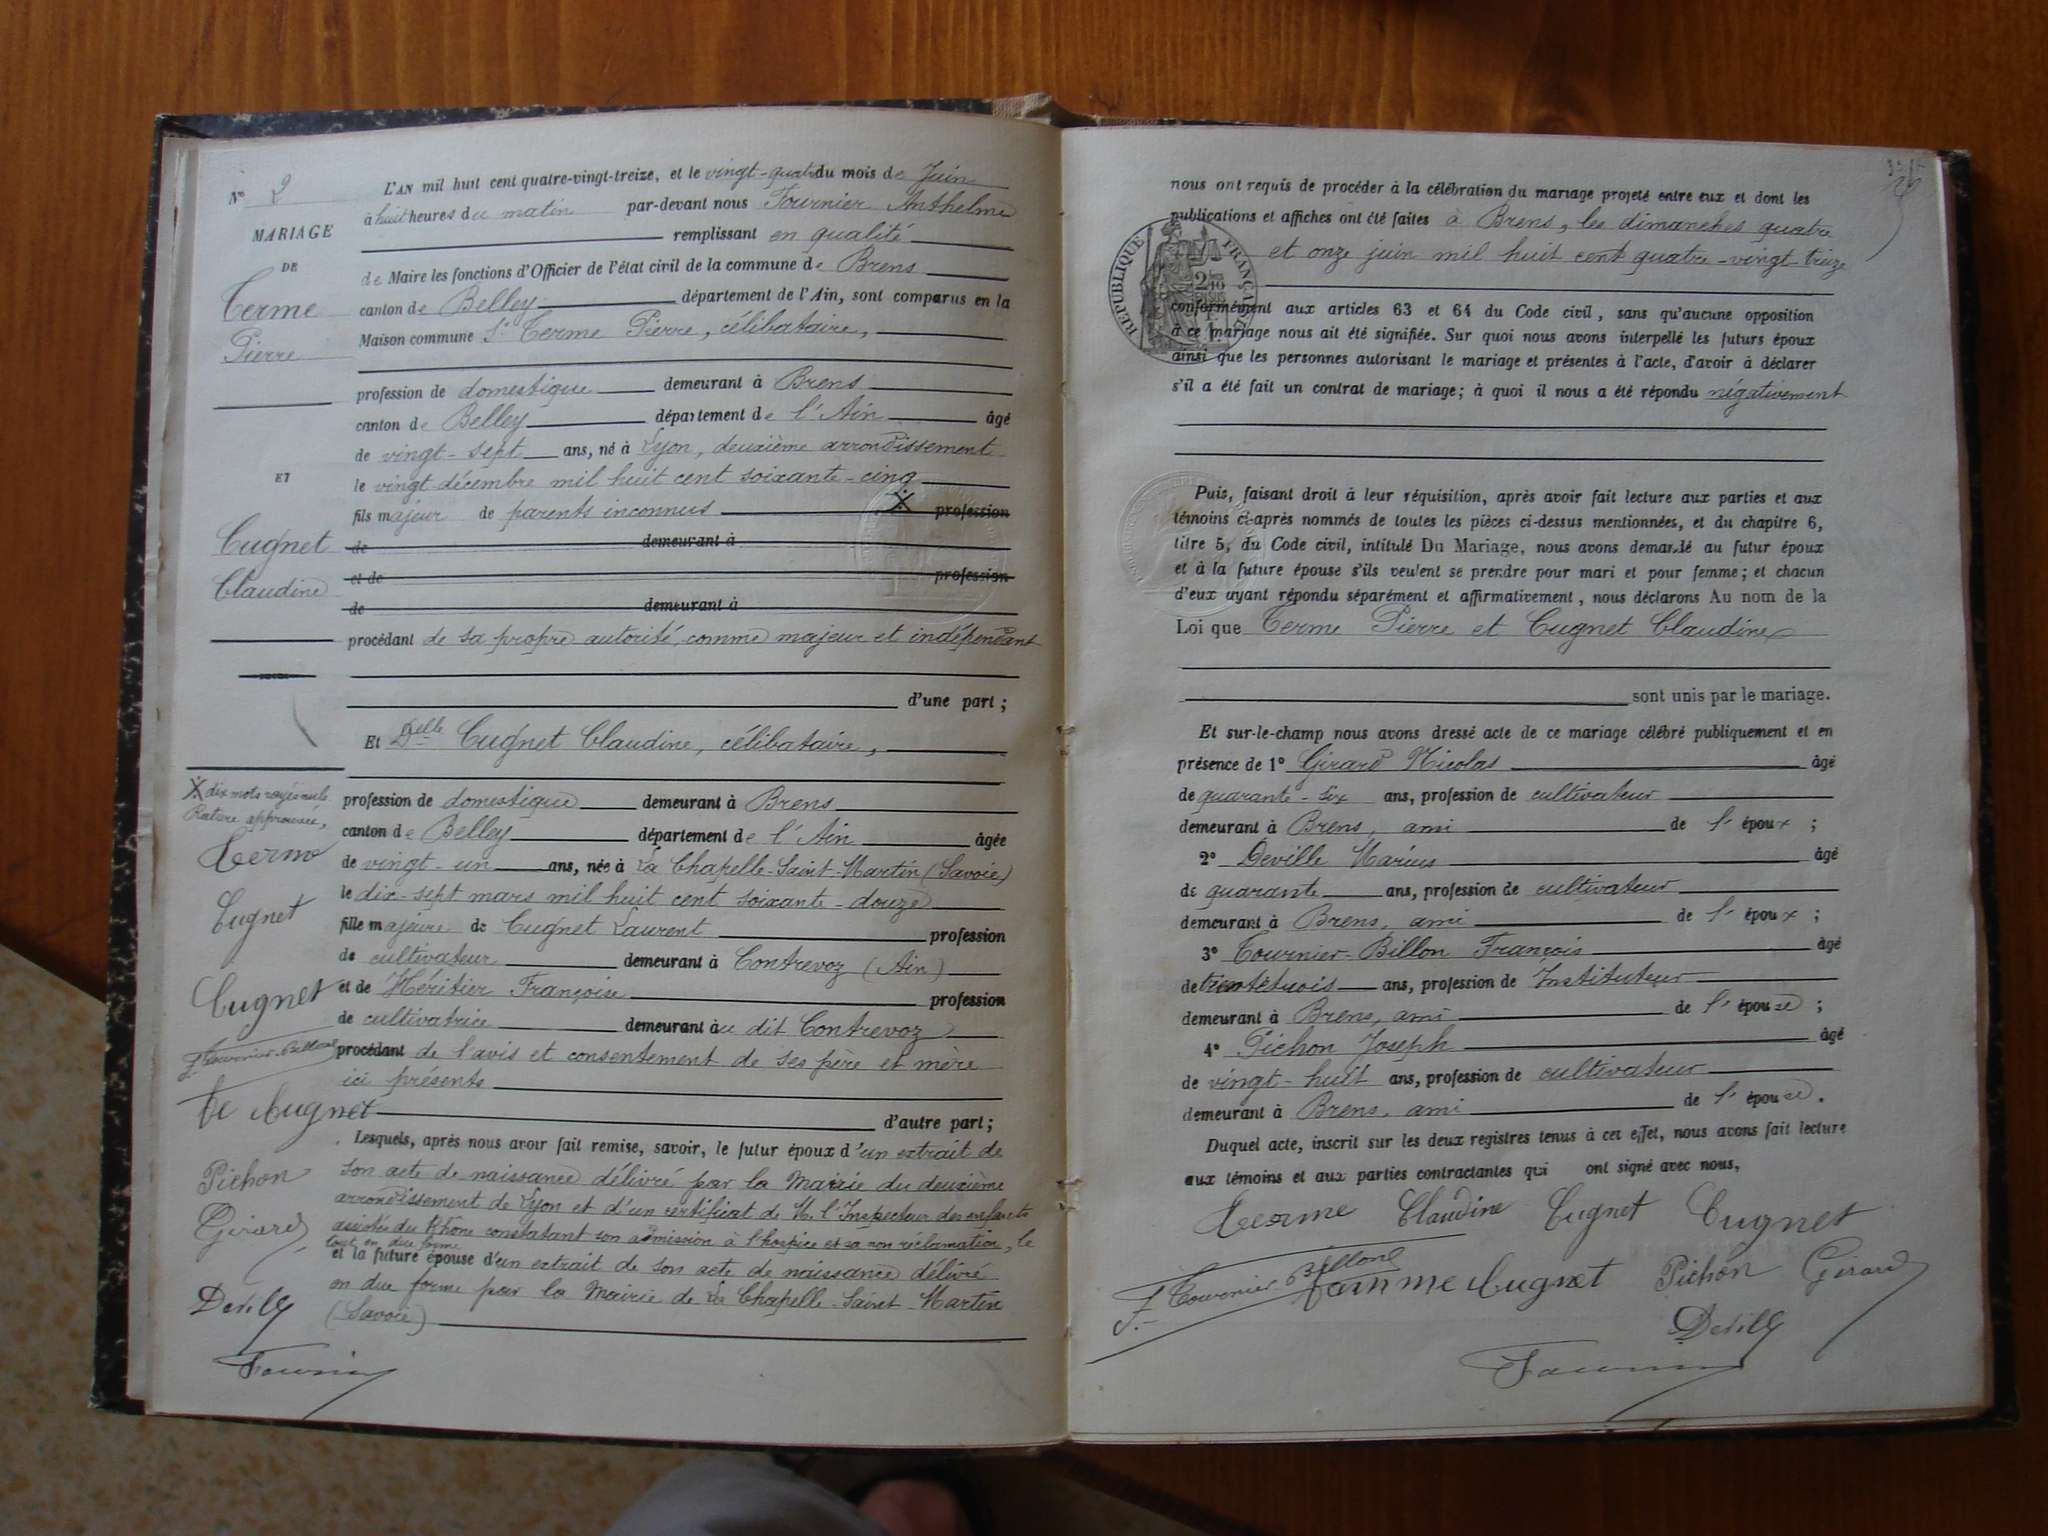 N° 2
MARIAGE
DE
Terme
Pierre
ET
Cugnet
Claudine
L'AN mil huit cent quatre-vingt-treize, et le vingt-quatre du mois de Juin
à huit heures du matin par-devant nous Fournier Anthelme
remplissant en qualité
de Maire les fonctions d'Officier de l'état civil de la commune de Brens
canton de Belley département de l'Ain, sont comparus en la
Maison commune Sr Terme Pierre, célibataire,
profession de domestique demeurant à Brens
canton de Belley département de l'Ain âgé
de vingt-sept ans, né à Lyon, deuxième arrondissement
le vingt décembre mil huit cent soixante-cinq
fils majeur de parents inconnus profession
de demeurant à
et de profession
de demeurant à
procédant de sa propre autorité, comme majeur et indépendant
d'une part ;
Et Delle Cugnet Claudine, célibataire,
profession de domestique demeurant à Brens
canton de Belley département de l'Ain âgée
de vingt-un ans, née à La Chapelle-Saint-Martin (Savoie)
le dix-sept mars mil huit cent soixante-douze
fille majeure de Cugnet Laurent profession
de cultivateur demeurant à Contrevoz (Ain)
et de Héritier Françoise profession
de cultivatrice demeurant au dit Contrevoz
procédant de l'avis et consentement de ses père et mère
ici présents
d'autre part ;
Lesquels, après nous avoir fait remise, savoir, le futur époux d'un extrait de
son acte de naissance délivré par la Mairie du deuxième
arrondissement de Lyon et d'un certificat de M. l'Inspecteur des enfants
assistés du Rhône constatant son admission à l'hospice et sa non réclamation, le
tout en due forme
et la future épouse d'un extrait de son acte de naissance délivré
en due forme par la Mairie de La Chapelle-Saint-Martin
(Savoie)
dix mots rayés nuls
Rature approuvée,
Terme
Cugnet
Cugnet
F. Tournier-Billon
Fe Cugnet
Pichon
Girard
Deville
Fournier
nous ont requis de procéder à la célébration du mariage projeté entre eux et dont les
publications et affiches ont été faites à Brens, les dimanches quatre
et onze juin mil huit cent quatre-vingt-treize
RÉPUBLIQUE FRANÇAISE
conformément aux articles 63 et 64 du Code civil, sans qu'aucune opposition
à ce mariage nous ait été signifiée. Sur quoi nous avons interpellé les futurs époux
ainsi que les personnes autorisant le mariage et présentes à l'acte, d'avoir à déclarer
s'il a été fait un contrat de mariage ; à quoi il nous a été répondu négativement
Puis, faisant droit à leur réquisition, après avoir fait lecture aux parties et aux
témoins ci-après nommés de toutes les pièces ci-dessus mentionnées, et du chapitre 6,
titre 5, du Code civil, intitulé Du Mariage, nous avons demandé au futur époux
et à la future épouse s'ils veulent se prendre pour mari et pour femme ; et chacun
d'eux ayant répondu séparément et affirmativement, nous déclarons Au nom de la
Loi que Terme Pierre et Cugnet Claudine
sont unis par le mariage.
Et sur-le-champ nous avons dressé acte de ce mariage célébré publiquement et en
présence de 1° Girard Nicolas âgé
de quarante-six ans, profession de cultivateur
demeurant à Brens, ami de l'époux ;
2° Deville Marius âgé
de quarante ans, profession de cultivateur
demeurant à Brens, ami de l'époux ;
3° Tournier-Billon François âgé
de trente trois ans, profession de Instituteur
demeurant à Brens, ami de l'épouse ;
4° Pichon Joseph âgé
de vingt-huit ans, profession de cultivateur
demeurant à Brens, ami de l'épouse.
Duquel acte, inscrit sur les deux registres tenus à cet effet, nous avons fait lecture
aux témoins et aux parties contractantes qui ont signé avec nous,
Terme Claudine Cugnet Cugnet
F. Tournier-Billon famme Cugnet Pichon Girard
Deville
Fournier